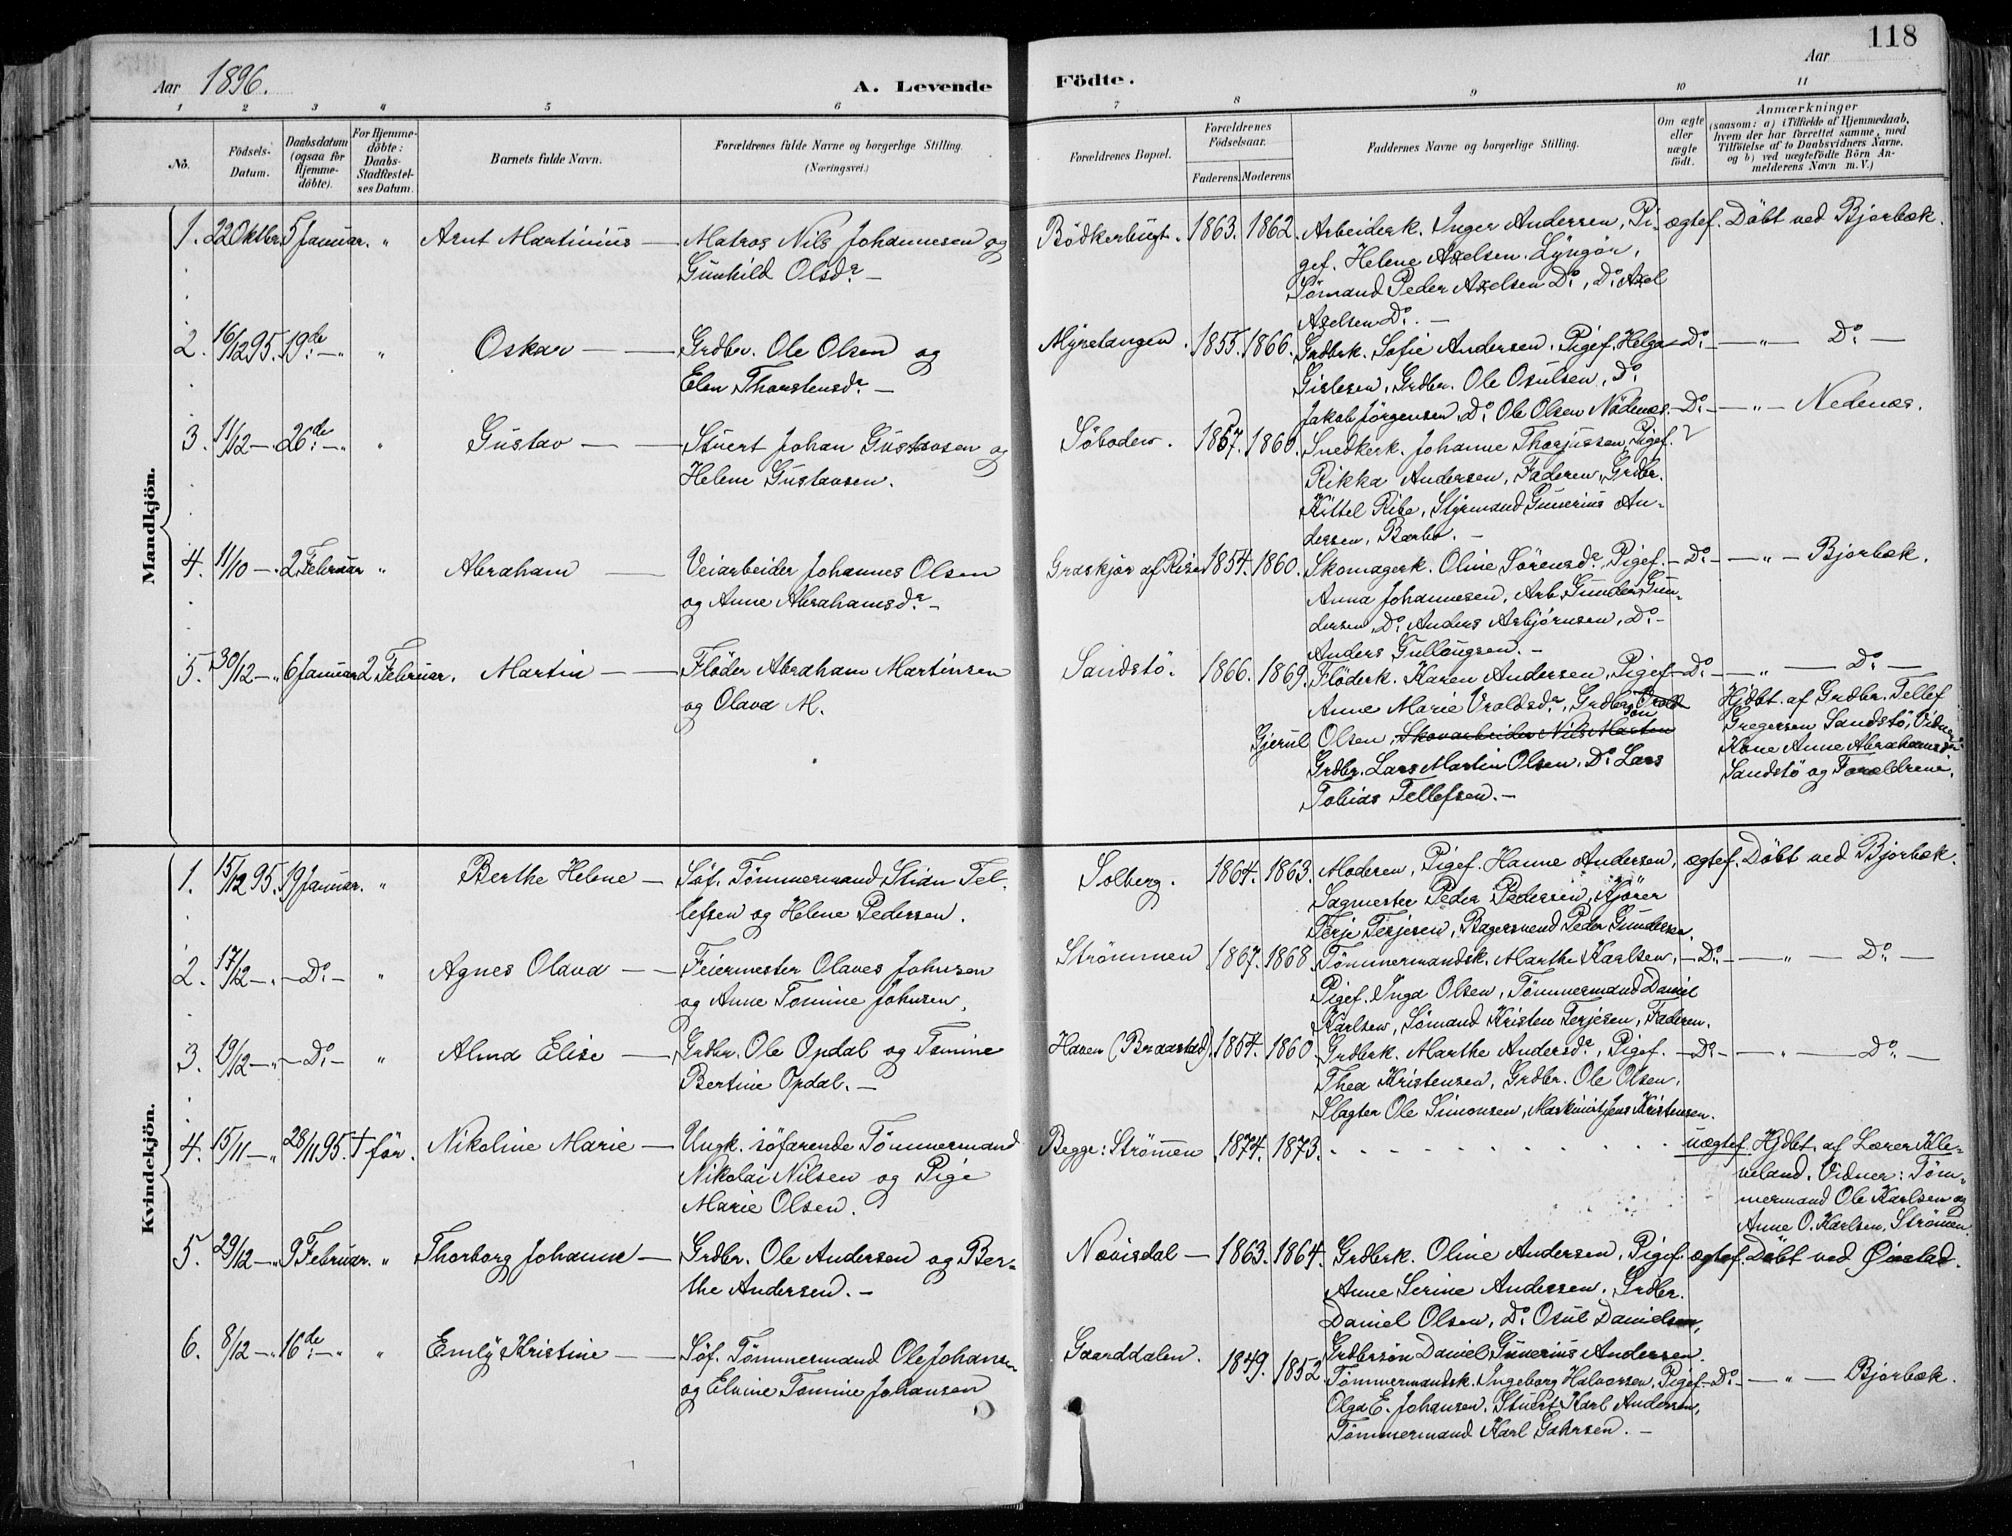 118
Aar 1896.
A. Levende Födte.
Aar
1 2 3 4 5 6 7 8 9 10 11
No.
Födsels-Datum.
Daabsdatum (ogsaa for Hjemme-döbte).
For Hjemme-döbte: Daabs-Stadfæstel-ses Datum.
Barnets fulde Navn.
Forældrenes fulde Navne og borgerlige Stilling. (Næringsvei.)
Forældrenes Bopæl.
Forældrenes Födselsaar.
Faderens. Moderens
Faddernes Navne og borgerlige Stilling.
Om ægte eller uægte födt.
Anmærkninger
(saasom: a) i Tilfælde af Hjemmedaab,
hvem der har forrettet samme, med
Tilföielse af to Daabsvidners Navne,
og b) ved uægtefödte Börn An-
melderens Navn m. V.)
Mandkjön.
1. 22 Oktbr. 5 Januar. " Arnt Martinius — Matros Nils Johannesen og
Gunhild Olsdr. —
Bödkerbugt. 1863. 1862. Arbeiderk. Inger Andersen, Pi- ægtef. Döbt ved Bjorbæk.
gef. Helene Axelsen Lyngör,
Sömand Peder Axelsen Do., Do. Axel
Axelsen Do. —
2. 16/12 95. 19de — " " Oskar — Grdbr. Ole Olsen og
Elen Thorstensdr. —
Myretangen. 1855. 1866. Grdbrk. Sofie Andersen, Pigef. Helga — Do. — " — Do. —
Gislesen, Grdbr. Ole Osulsen, Do.
Jakob Jörgensen, Do. Ole Olsen Nödenæs.
3. 11/12 — 26de — " " Gustav — Stuert Johan Gustavsen og
Helene Gustavsen.
Söboden. 1867. 1860. Snedkerk. Johanne Thorjussen, Pigef. — Do. — " — Nedenæs.
Rikka Andersen, Faderen, Grdbr.
Kittel Ribe, Styrmand Gunerius An-
dersen, Barbo. —
4. 11/10 — " 2 Februar " Abraham — Veiarbeider Johannes Olsen
og Anne Abrahamsdr. —
Graskjær af Risör 1854. 1860. Skomagerk. Oline Sörensdr., Pigef. — Do. — " — Bjorbæk.
Anna Johannesen, Arb. Gunder Gun-
dersen, Do. Anders Asbjörnsen, Do. —
Anders Gullougsen. —
5. 30/12 — " 6 Januar 2 Februar. Martin — Fløder Abraham Martinsen
og Olava M.
Sandstö. 1866. 1869. Flöderk. Karen Andersen, Pigef. — Do. — " — Do. —
Anne Marie Vroldsdr., Grdbrsön Vrold
Gjerul Olsen, Skovarbeider Nils Morten
Grdbr. Lars Martin Olsen, Do. Lars
Tobias Tellefsen. —
Hjdbt. af Grdbr. Tellef
Gregersen Sandstö, Vidner
Kone Anne Abrahamsdr.
Sandstö og Forældrene.
Kvindekjön.
1. 15/12 95. 19 Januar. " Berthe Helene — Søf. Tømmermand Stian Tel-
lefsen og Helene Pedersen.
Solberg. 1864. 1863. Moderen, Pigef. Hanne Andersen, ægtef. Döbt ved Bjorbæk.
Sagmester Peder Pedersen, Kjörer
Terje Terjesen, Bagersvend Peder Gundersen.
2. 17/12 — " — Do. — " Agnes Olava — Feiermester Olaves Johnsen
og Anne Tomine Johnsen.
Strømmen 1867. 1868. Tømmermandsk. Marthe Karlsen, — Do. — " — Do. —
Pigef. Inga Olsen, Tømmermand Daniel
Karlsen, Sømand Kristen Terjesen, Faderen.
3. 19/12 — " — Do. — " Alma Elise — Grdbr. Ole Opdal og Tomine
Bertine Opdal. —
Haven (Braastad) 1854. 1860. Grdbrk. Marthe Andersdr., Pigef. — Do. — " — Do. —
Thea Kristensen, Grdbr. Ole Olsen,
Slagter Ole Simonsen, Maskinist Jens Kristensen.
4. 15/11 — " 28/11 95. † før. Nikoline Marie — Ungk. søfarende Tømmermand
Nikolai Nilsen og Pige
Marie Olsen.
Begge: Strømmen 1874. 1873. uægtef. Hjdbt. af Lærer Kle-
veland. Vidner: Tøm-
mermand Ole Karlsen og
Anne O. Karlsen, Strømen.
5. 29/12 — " 9 Februar. " Thorborg Johanne — Grdbr. Ole Andersen og Ber-
the Andersen. —
Nævisdal — 1863. 1864. Grdbrk. Oline Andersen, Pigef. ægtef. Döbt ved Øiestad.
Anne Serine Andersen, Grdbr.
Daniel Olsen, Do. Osul Danielsen,
Grdbrsøn Daniel Gunerius Andersen.
6. 8/12 — " 16de — " " Emly Kristine — Søf. Tømmermand Ole Johansen
og Elvine Tomine Johansen
Gaarddalen. 1849. 1852. Tømmermandsk. Ingeborg Halvorsen, Pigef. — Do. — " — Bjorbæk.
Olga E. Johansen, Stuert Karl Andersen,
Tømmermand Karl Gahrsen. —